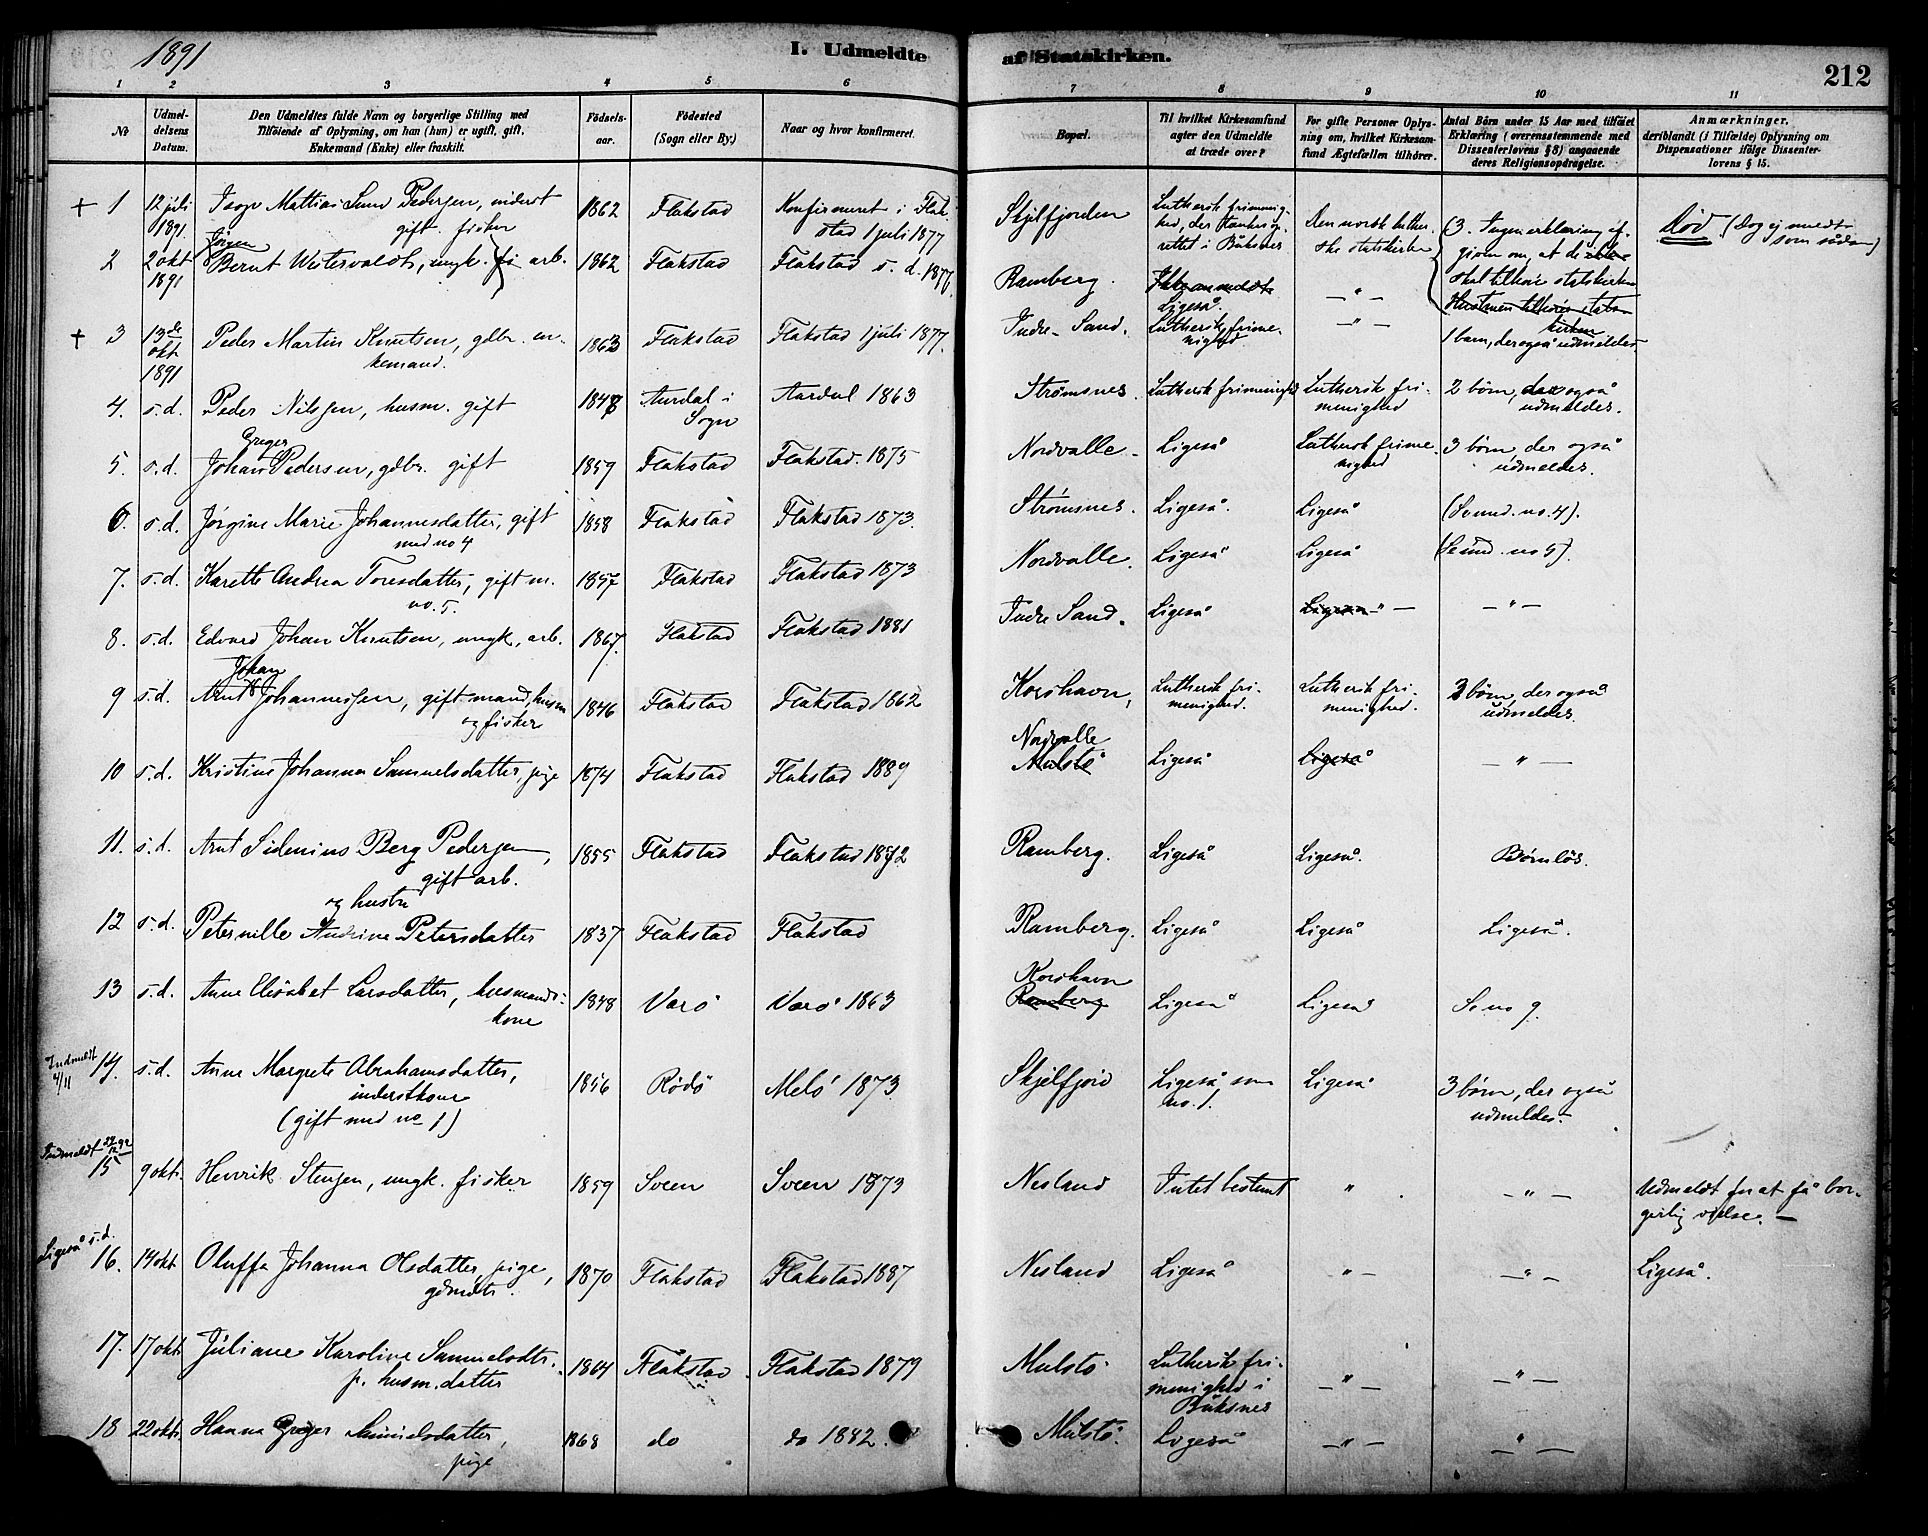 1891
I. Udmeldte
af Statskirken.
212
1 2 3 4 5 6 7 8 9 10 11
No
Udmel-
delsens
Datum.
Den Udmeldtes fulde Navn og borgerlige Stilling med
Tilføiende af Oplysning, om han (hun) er ugift, gift,
Enkemand (Enke) eller fraskilt.
Fødsels-
aar.
Fødested
(Sogn eller By.)
Naar og hvor konfirmeret.
Bopæl.
Til hvilket Kirkesamfund
agter den Udmeldte
at træde over?
For gifte Personer Oplys-
ning om, hvilket Kirkesam-
fund Ægtefællen tilhører.
Antal Börn under 15 Aar med tilføiet
Erklæring (overensstemmende med
Dissenterlovens § 8) angaaende
deres Religionsopdragelse.
Anmærkninger,
deriblandt (i Tilfælde) Oplysning om
Dispensationer ifølge Dissenter-
lovens § 15.
+ 1
12 juli
1891
Mattias Sund Pedersen, inderst
gift. fisker
1862
Flakstad
Konfirmeret i Flak-
stad 1 juli 1877
Skjelfjorden
Luthersk frimenig-
hed, der tænkes op-
rettet i Buksnes
Den norsk luther-
ske statskirke
(3. Ingen erklæring af-
given om, at de
skal tilhøre statskirken
Død (dog ej meldt
som sådan)
2
2 okt
1891
Jørgen
Bernt Westervaldt, ungk. arb.
1862
Flakstad
Flakstad s. d. 1877.
Ramberg.
Ligeså
— " —
+ 3
13de
okt
1891
Peder Martin Knutsen, gdbr. en-
kemand.
1863
Flakstad
Flakstad 1 juli 1877.
Indre Sand.
Luthersk frime-
nighed
— " —
1 barn, der også udmeldes.
4. s.d.
Peder Nilsen, husm. gift
1848
Aardal i
Sogn
Aardal 1863
Strømsnes.
Luthersk frimenighed
Luthersk fri-
menighed
2 börn, der også
udmeldes.
5. s.d.
Greger
Johan Pedersen, gdbr. gift
1859
Flakstad
Flakstad. 1875
Nordvalle
Ligeså
Luthersk frime-
nighed
3 börn, der også
udmeldes.
6. s.d.
Jørgine Marie Johannesdatter, gift
med no 4
1858
Flakstad
Flakstad 1873.
Strømsnes.
Ligeså.
Ligeså
(Se und. no. 4).
7. s.d.
Karette Andrea Toresdatter, gift m.
no. 5.
1857
Flakstad
Flakstad 1873
Nordvalle.
Ligeså
Ligeså
(Se und. no 5).
8. s.d.
Edvard Johan Knutsen, ungk, arb.
1867.
Flakstad
Flakstad 1881
Indre Sand.
Ligeså
Ligeså " —
— " —
9 s.d.
Johan
Arnt Johannessen, gift mand, husm
og fisker
1846
Flakstad
Flakstad 1862
Korshavn,
Luthersk fri-
menighed.
Luthersk fri-
menighed.
3 börn, der også
udmeldes.
10 s.d.
Kristine Johanna Samuelsdatter, pige
1874
Flakstad
Flakstad 1889
Nordvalle
Mulstö
Ligeså
Ligeså
— " —
11. s.d.
Arnt Sidenius Berg Pedersen,
gift arb.
1855
Flakstad
Flakstad 1872
Ramberg.
Ligeså
Ligeså.
Börnlös.
12 s.d.
og hustru
Peternille Andrine Petersdatter
1837
Flakstad
Flakstad
Ramberg.
Ligeså
Ligeså
Ligeså.
13 s.d.
Anne Elisabet Larsdatter, husmands-
kone
1848
Varö
Varö 1863
Korshavn
Ramberg
Ligeså
Ligeså
Se no 9.
Indmeldt
4/11
14. s.d.
Anne Margrete Abrahamsdatter,
inderstkone
(gift med no 1)
1856
Rödö
Melö 1873
Skjelfjord
Ligeså som
no. 1.
Ligeså
3 börn, der også
udmeldes.
Indmeldt
15
9 okt.
Henrik Stensen, ungk. fisker
1859
Sveen
Sveen 1873
Nesland
Intet bestemt
"
— " —
Udmeldt for at få bor-
gerlig vielse. —
Ligeså s.d.
16.
14 okt
Oluffa Johanna Olsdatter, pige,
gdmdtr.
1870
Flakstad
Flakstad 1887
Nesland
Ligeså
" —
— " —
Ligeså.
17.
17 okt
Juliane Karoline Samuelsdtr.
p. husm.datter
1864
Flakstad.
Flakstad 1879
Mulstö
Luthersk fri-
menighed i
Buksnes
— " —
— " —
18
22 okt.
Hanna Greger Samuelsdatter,
pige
1868
do
do 1882.
Mulstö.
Ligeså
— " —
— " —